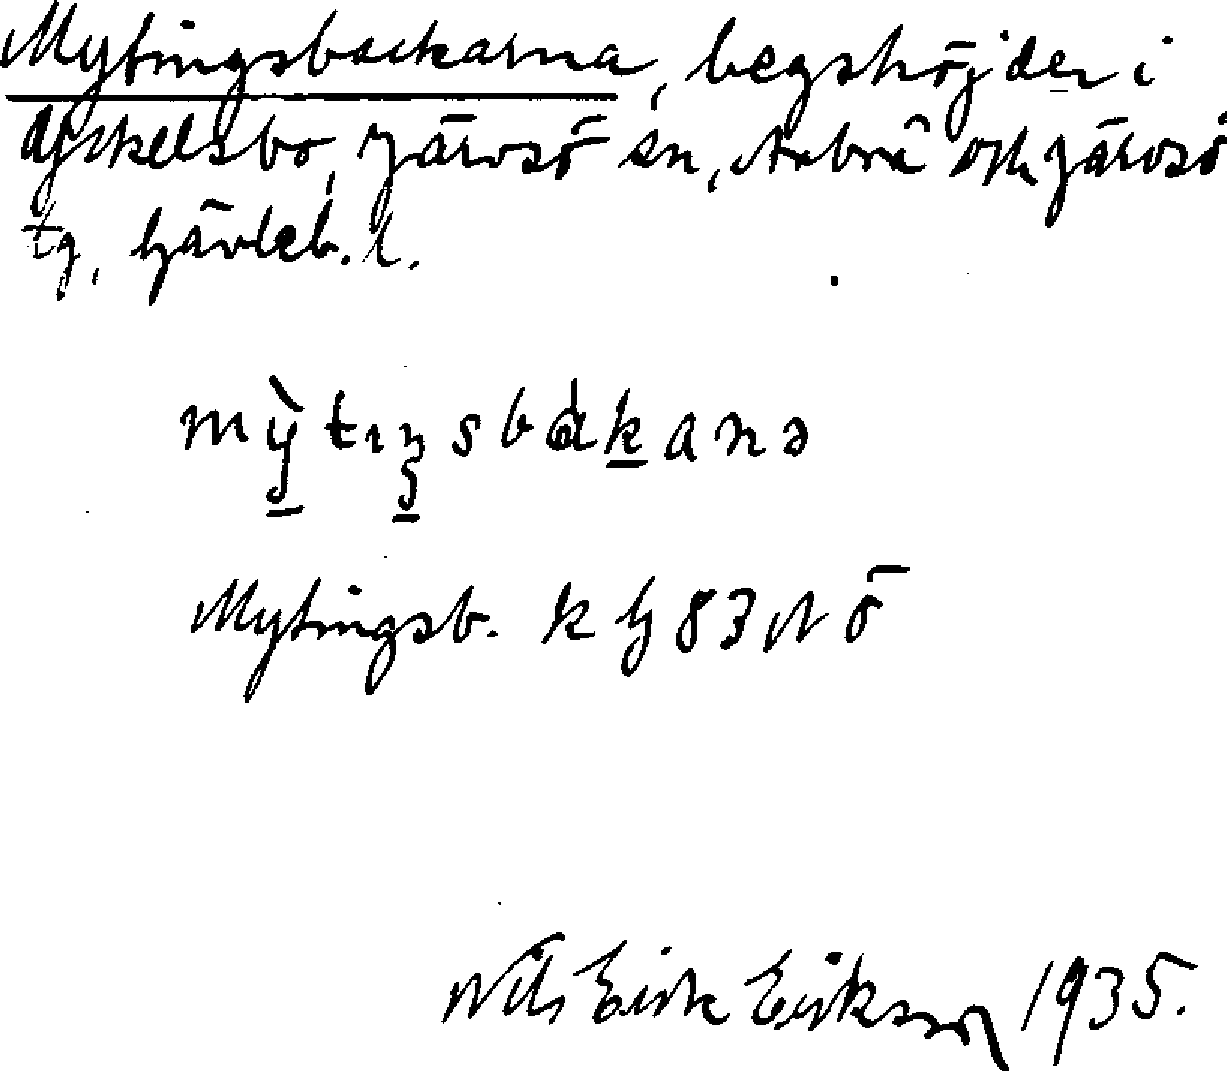 Mytingsbackarna, bergshöjder i
Nyckelsbo, Järvsö sn, Arbrå och Järvsö
tg, Gävleb. l.
mỳtıŋsbàkanə
Mytingsb. k G 83 N Ö
Nils Eirik Eiriksson 1935.